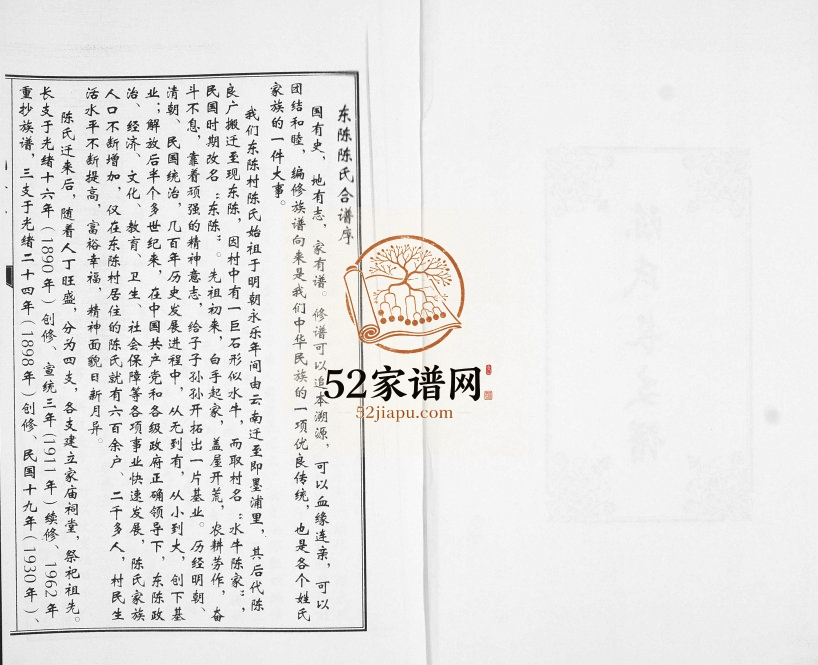 东陈陈氏合谱序
国有史，地有志，家有谱。修谱可以追本溯源，可以血缘连亲，可以
团结和睦，编修族谱向来是我们中华民族的一项优良传统，也是各个姓氏
家族的一件大事。
我们东陈村陈氏始祖于明朝永乐年间由云南迁至即墨浦里，其后代陈
良广搬迁至现东陈，因村中有一巨石形似水牛，而取村名“水牛陈家”，
民国时期改名“东陈”。先祖初来，白手起家，盖屋开荒，农耕劳作，奋
斗不息，靠着顽强的精神意志，给子子孙孙开拓出一片基业。历经明朝、
清朝、民国统治，几百年历史发展进程中，从无到有，从小到大，创下基
业；解放后半个多世纪来，在中国共产党和各级政府正确领导下，东陈政
治、经济、文化、教育、卫生、社会保障等各项事业快速发展，陈氏家族
人口不断增加，仅在东陈村居住的陈氏就有六百余户、二千多人，村民生
活水平不断提高，富裕幸福，精神面貌日新月异。
陈氏迁来后，随着人丁旺盛，分为四支，各支建立家庙祠堂，祭祀祖先。
长支于光绪十六年（1890年）创修、宣统三年（1911年）续修、1962年
重抄族谱，三支于光绪二十四年（1898年）创修、民国十九年（1930年）、
52家谱网
52jiapu.com